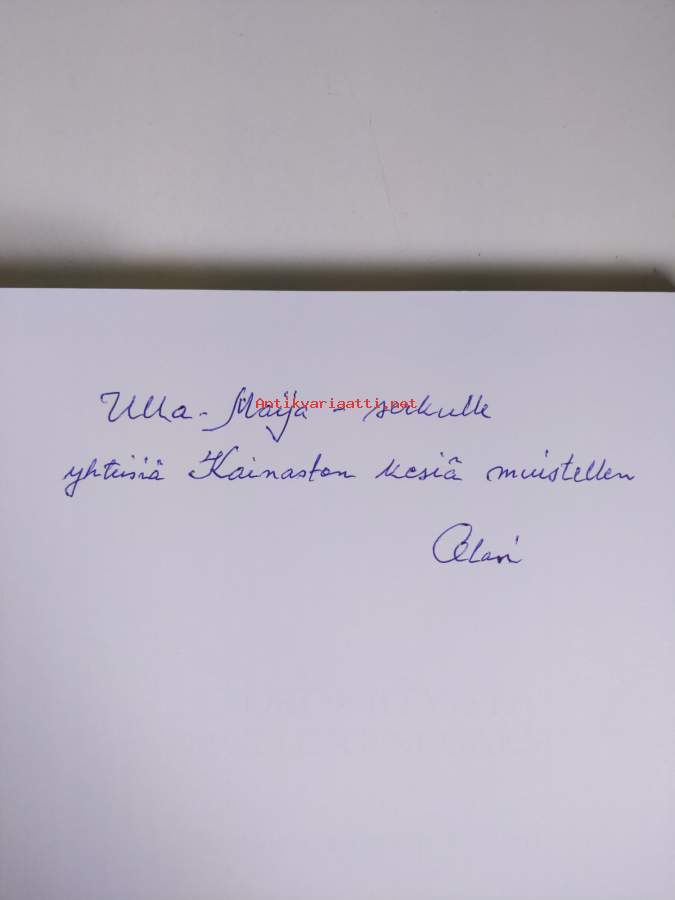 Ulla-Maija-serkulle
Antikvariaatti.net
yhteisiä Kainaston kesiä muistellen
Olavi